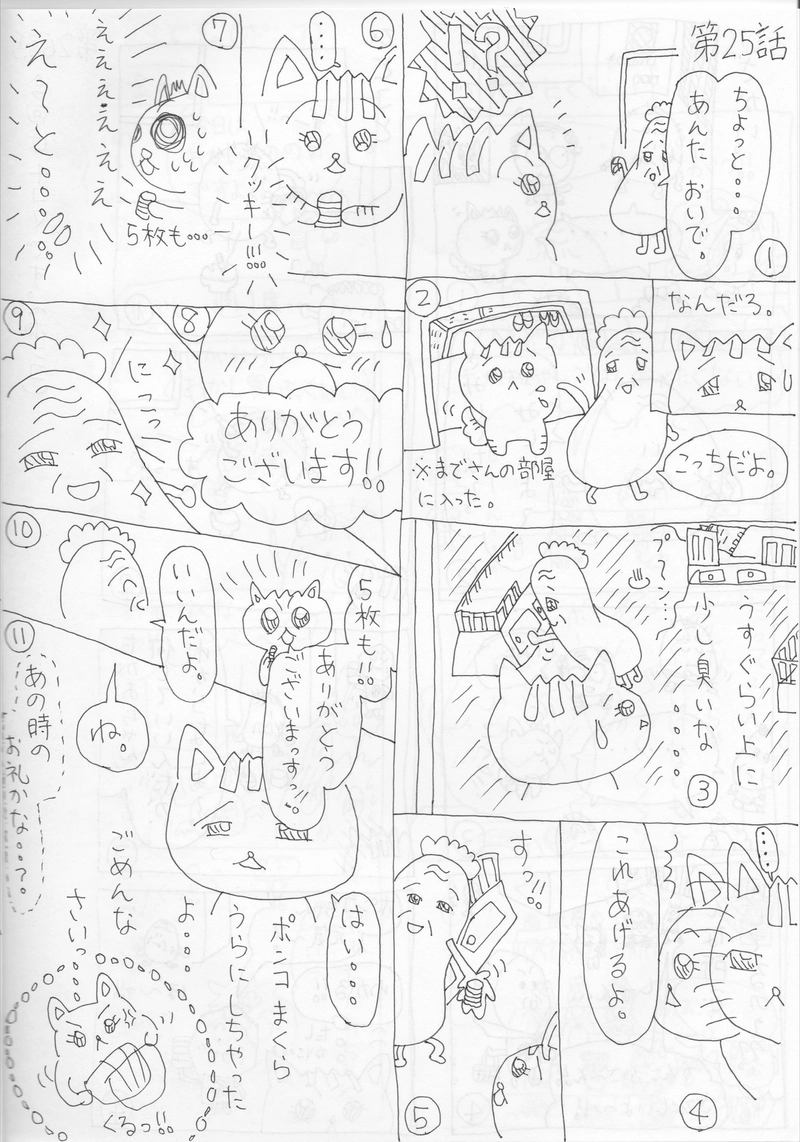 第25話
ちょっと。。。
あんた おいで。
①
!?
なんだろ。
②
こっちだよ。
※までさんの部屋
に入った。
プ〜ン…
うすぐらい上に
少し臭いな
。。。。
③
……
これあげるよ。
④
すっ!!。
⑤
⑥
……
クッキー!!!。。。
⑦
5枚も…
ええええええ
え〜と。。。。。
⑧
ありがとう
ございます!!
⑨
にこっ
⑩
5枚も!!。
ありがとう
ございまっすっ!!。
いいんだよ。
⑪
ね。
はい。。。。
あの時の
お礼かな。。。?。
ポンコ まくら
うらにしちゃった
よ。。。
ごめんな
さいっ。。。
くるっ!!。